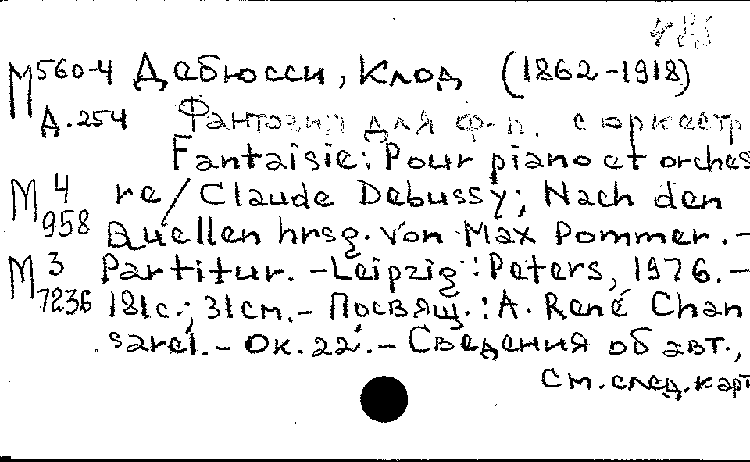 М560-4 Дебюсси, Клод (1862-1918)
Д.254 Фантазия для ф-п. с оркестр
Fantaisie: Pour piano et orches
М 4 re/Claude Debussy; Nach den
958 Quellen hrsg. von Max Pommer.-
М 3 Partitur. -Leipzig: Peters, 1976.-
7236 181с.; 31см.- Посвящ.: A. René Chan
sarel.- Ок.22'.- Сведения об авт.,
См.след.карт